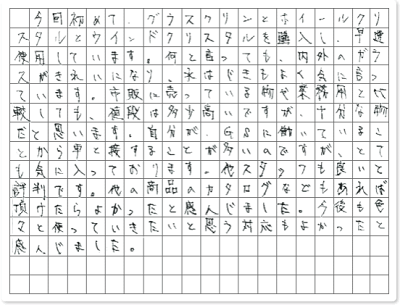 今回初めて、グラスクリンとホイールクリ
スタルとウインドクリスタルを購入し、早速
使用しています。何と言っても、内外のガラ
スがきれいになり、水はじきもよく気に入っ
ています。市販に売っている物や業務用と比
較しても、値段は多少高いですが、十分な物
だと思います。自分が、GSに働いているこ
とから車と接することが多いのですが、とて
も気に入っております。他スタッフも良いと
評判です。他の商品のカタログなどもあれば
頂けたらよかったと感じました。今後も色
々と使っていきたいと思う対応もよかったと
感じました。